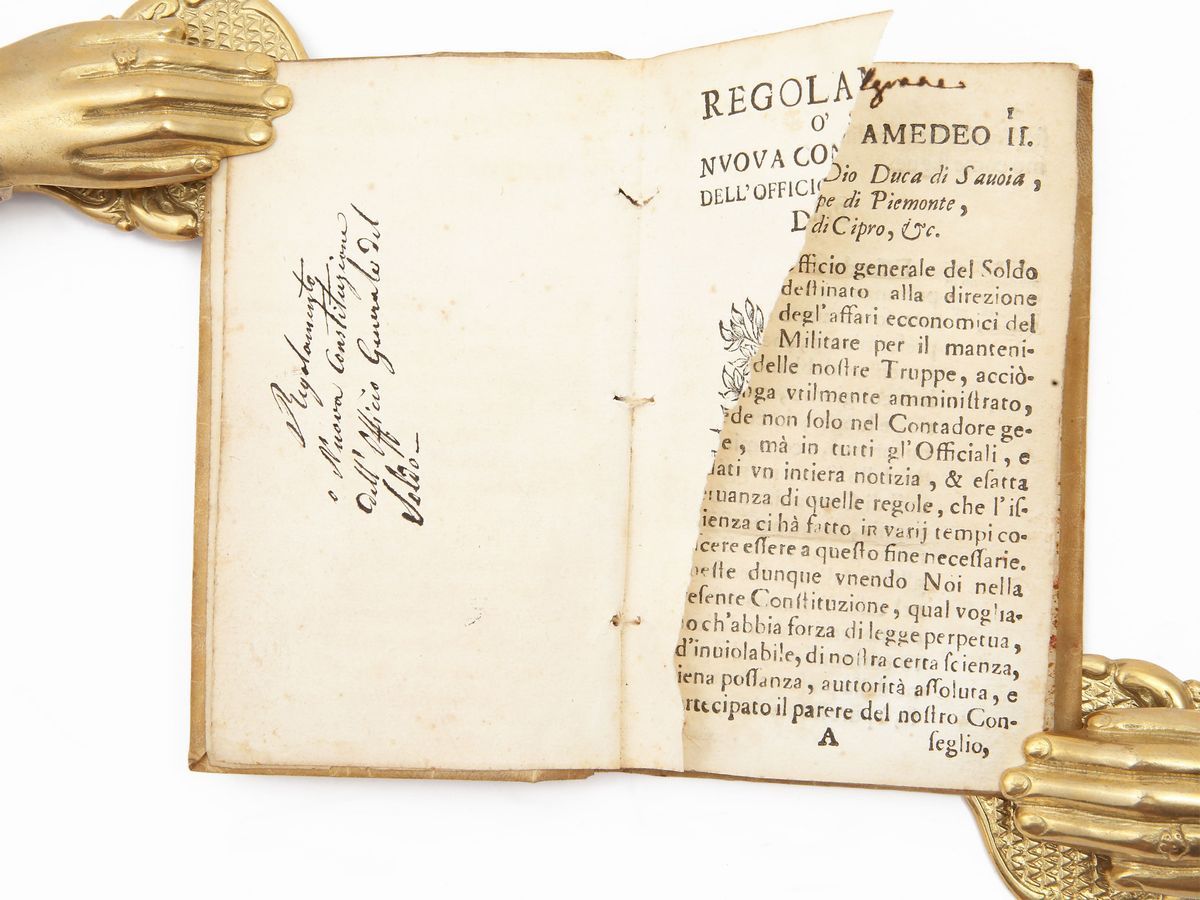 Regolamento
o Nuova Constituzione
dell'Officio Generale del
Soldo
REGOLA
O'
NVOVA CON
DELL'OFFICIO
D
AMEDEO II.
Dio Duca di Sauoia,
pe di Piemonte,
di Cipro, &c.
fficio generale del Soldo
deſtinato alla direzione
degl'affari ecconomici del
Militare per il manteni-
delle noſtre Truppe, acciò-
nga vtilmente amminiſtrato,
de non ſolo nel Contadore ge-
e, mà in tutti gl'Officiali, e
dati vn intiera notizia, & eſatta
ruanza di quelle regole, che l'iſ-
ienza ci hà fatto in varij tempi co-
ſcere eſſere a queſto fine neceſſarie.
ueſte dunque vnendo Noi nella
eſente Conſtituzione, qual voglia-
o ch'abbia forza di legge perpetua,
d'inuiolabile, di noſtra certa ſcienza,
iena poſſanza, auttorità aſſoluta, e
rtecipato il parere del noſtro Con-
A ſeglio,